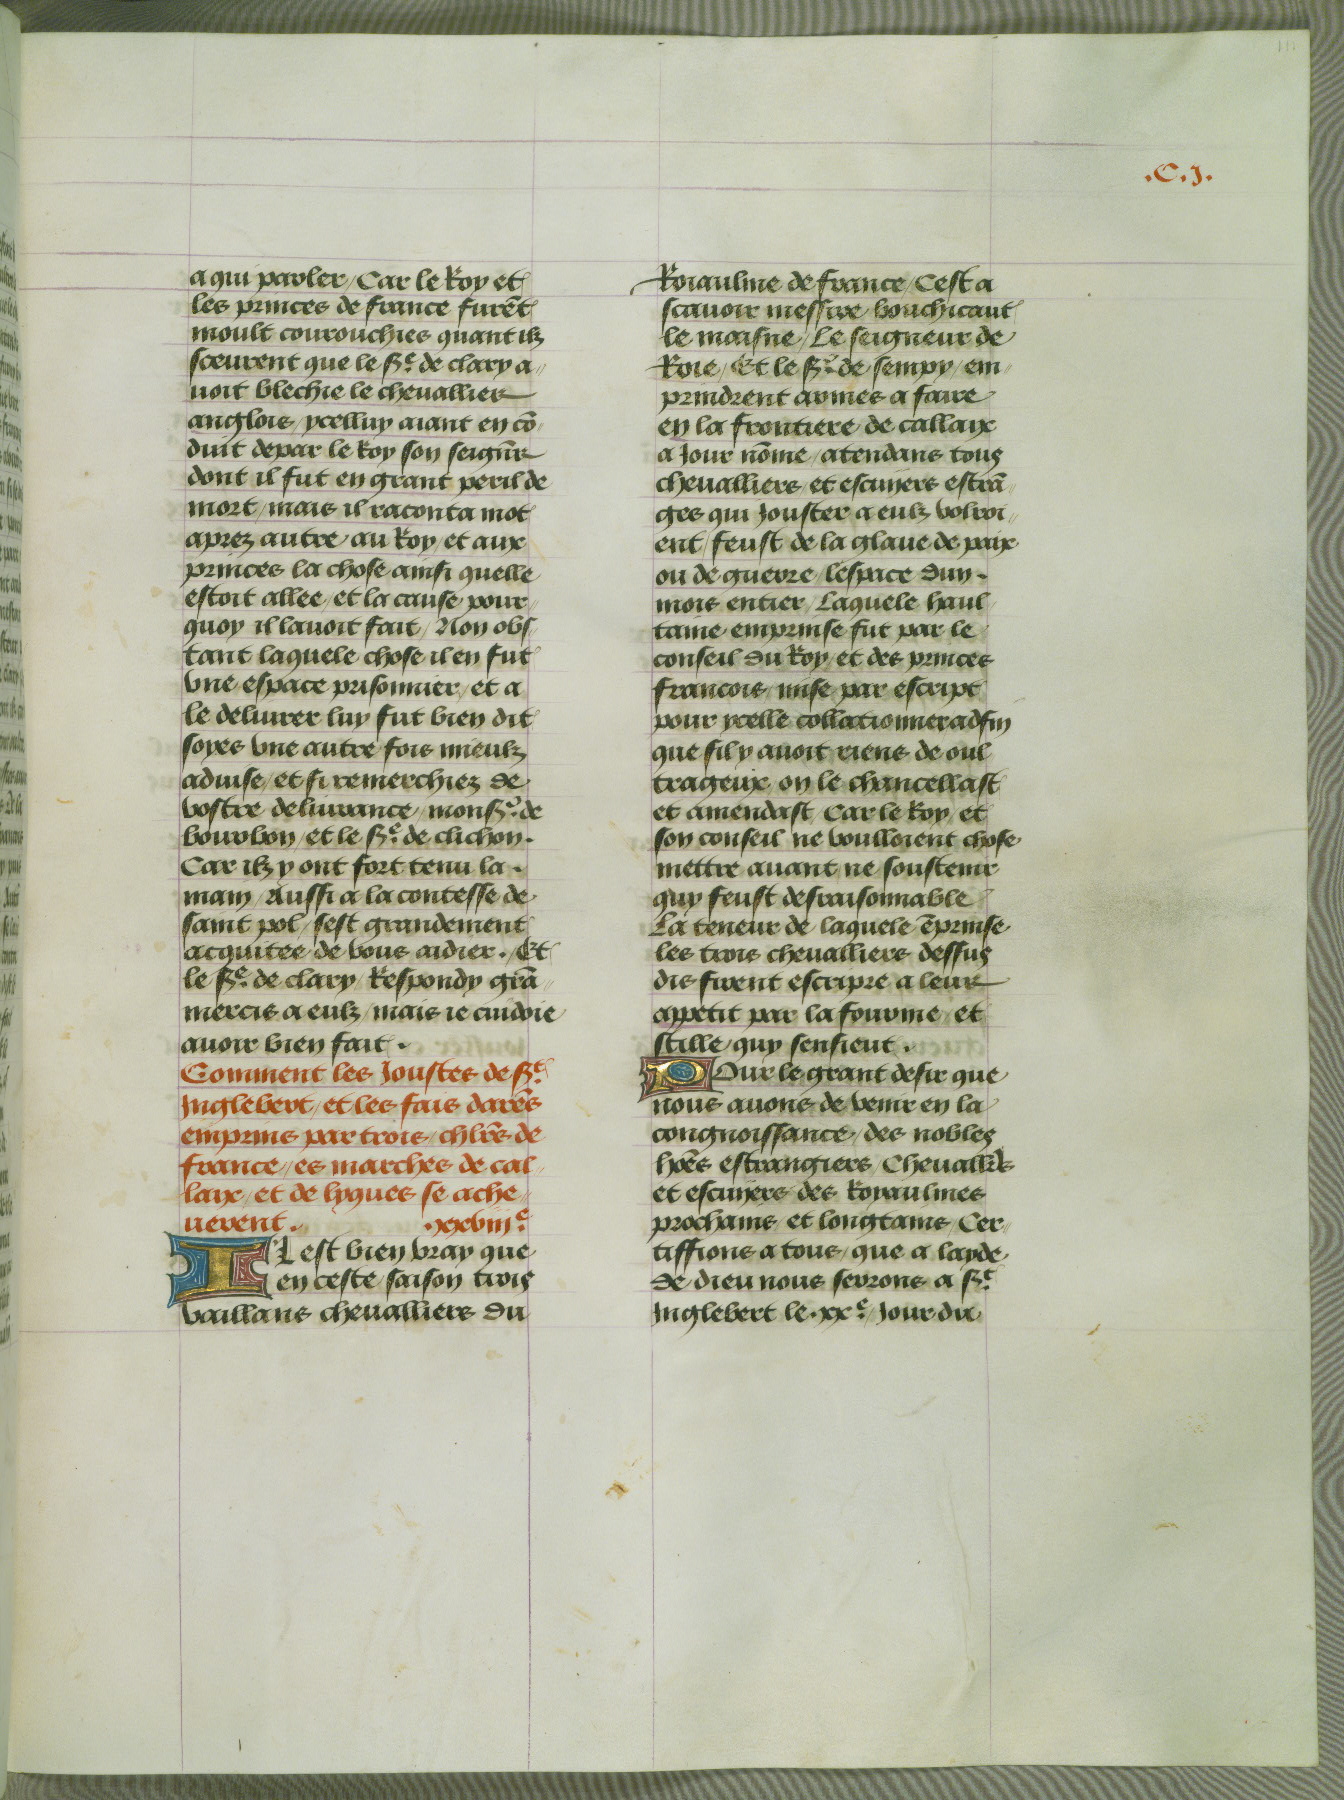 .C.J.
a qui parler / Car le Roy et
les princes de france furẽt
moult courouchies quant ilz
sceurent que le sr̃ de clary a〃
uoit blechie le cheuallier
anglois / ycelluy aiant en cõ〃
duit depar le Roy son seignr̃
dont il fut en grant peril de
mort / mais il raconta mot
aprez autre au Roy / et aux
princes la chose ainsi quelle
estoit allee / et la cause pour〃
quoy il lauoit fait / Non obs〃
tant laquele chose il en fut
vne espace prisonnier / et a
le deliurer luy fut bien dit
soyes vne autre fois mieulz
aduise / et si remerchiez de
vostre deliurance / monsr̃ de
bourbon / et le sr̃ de clichon .
Car ilz y ont fort tenu la .
main / Aussi a la contesse de
saint pol / sest grandement
acquitee de vous aidier . / Et
le sr̃ de clary / Respondy grã〃
mercis a eulz / mais ie cuidoie
auoir bien fait .
Comment les Joustes de st
Inglebert / et les fais darẽs
emprins par trois / chlr̃s de
france / es marches de cal〃
laix / et de lyques se ache〃
uerent . .xxviiie
IL est bien vray que
en ceste saison trois
vaillans cheualliers du
Roiaulme de france / Cest a
scauoir messire / bouchicaut
le maisne / Le seigneur de
Roie / Et le sr̃ de sempy / em〃
prindrent armes a faire
en la frontiere de callaix
a Jour nõme / atendans tous
cheualliers et escuiers estrã〃
ges qui Jouster a eulz volroi〃
ent / feust de la glaue de paix
ou de guerre / lespace dun .
mois entier / Laquele haul〃
taine emprinse fut par le
conseil du Roy / et des princes
francois / mise par escript
pour ycelle collacionner adfin
que sil y auoit riens de oul〃
trageux / on le chancellast
et amendast / Car le Roy / et
son conseil ne voulloient chose
mettre auant ne soustenir
quy feust desraisonnable
La teneur de laquele ẽprinse
les trois cheualliers dessus
dis firent escripre a leur
apetit par la fourme / et
stille quy sensieut .
Pour le grant desir que
nous auons de venir en la
congnoissance / des nobles
hões estrangiers / Cheuallr̃s
et escuiers des Royaulmes
prochains et longtains / Cer〃
tiffions a tous / que a layde
de dieu nous serons a st
Inglebert le .xxe. Jour du